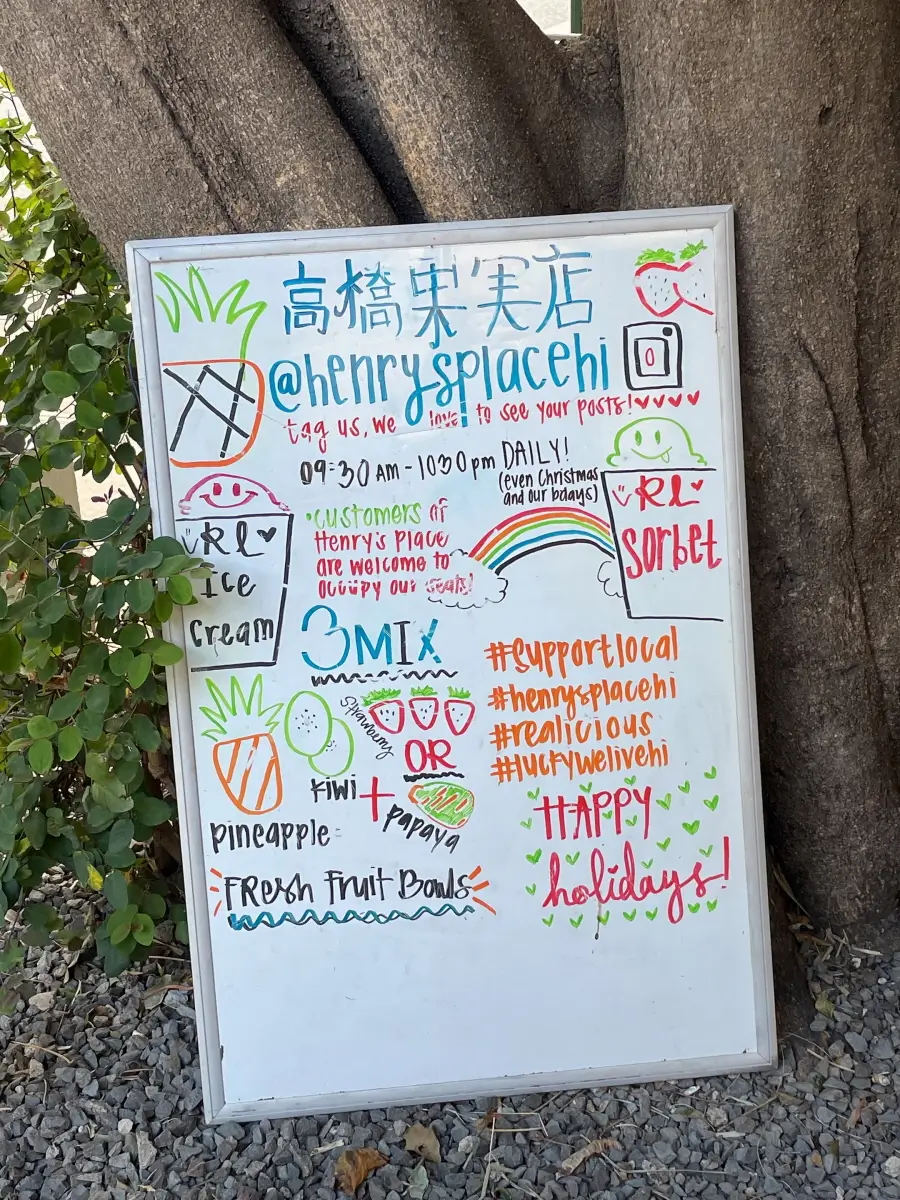 高橋果実店
@henrysplacehi
tag us, we love to see your posts!
09:30 AM - 1030 pm DAILY!
(even Christmas
and our bdays)
RL
Ice
Cream
•customers of
Henry's Place
are welcome to
occupy our seats!
RL
Sorbet
3MIX
strawberry
OR
kiwi + papaya
pineapple
Fresh Fruit Bowls
#supportlocal
#henrysplacehi
#realicious
#luckywelivehi
HAPPY
holidays!